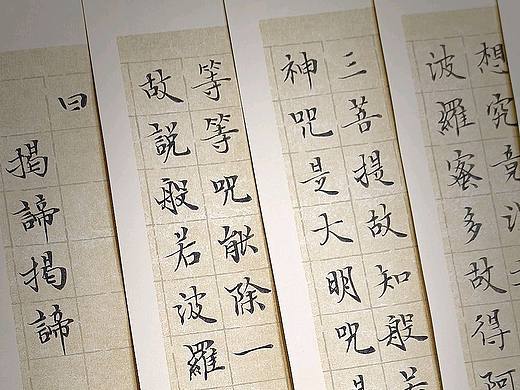 想究竟
波羅蜜多故得阿
三菩提故知般若
神咒是大明咒是
等等咒能除一
故説般若波羅
曰
揭諦揭諦